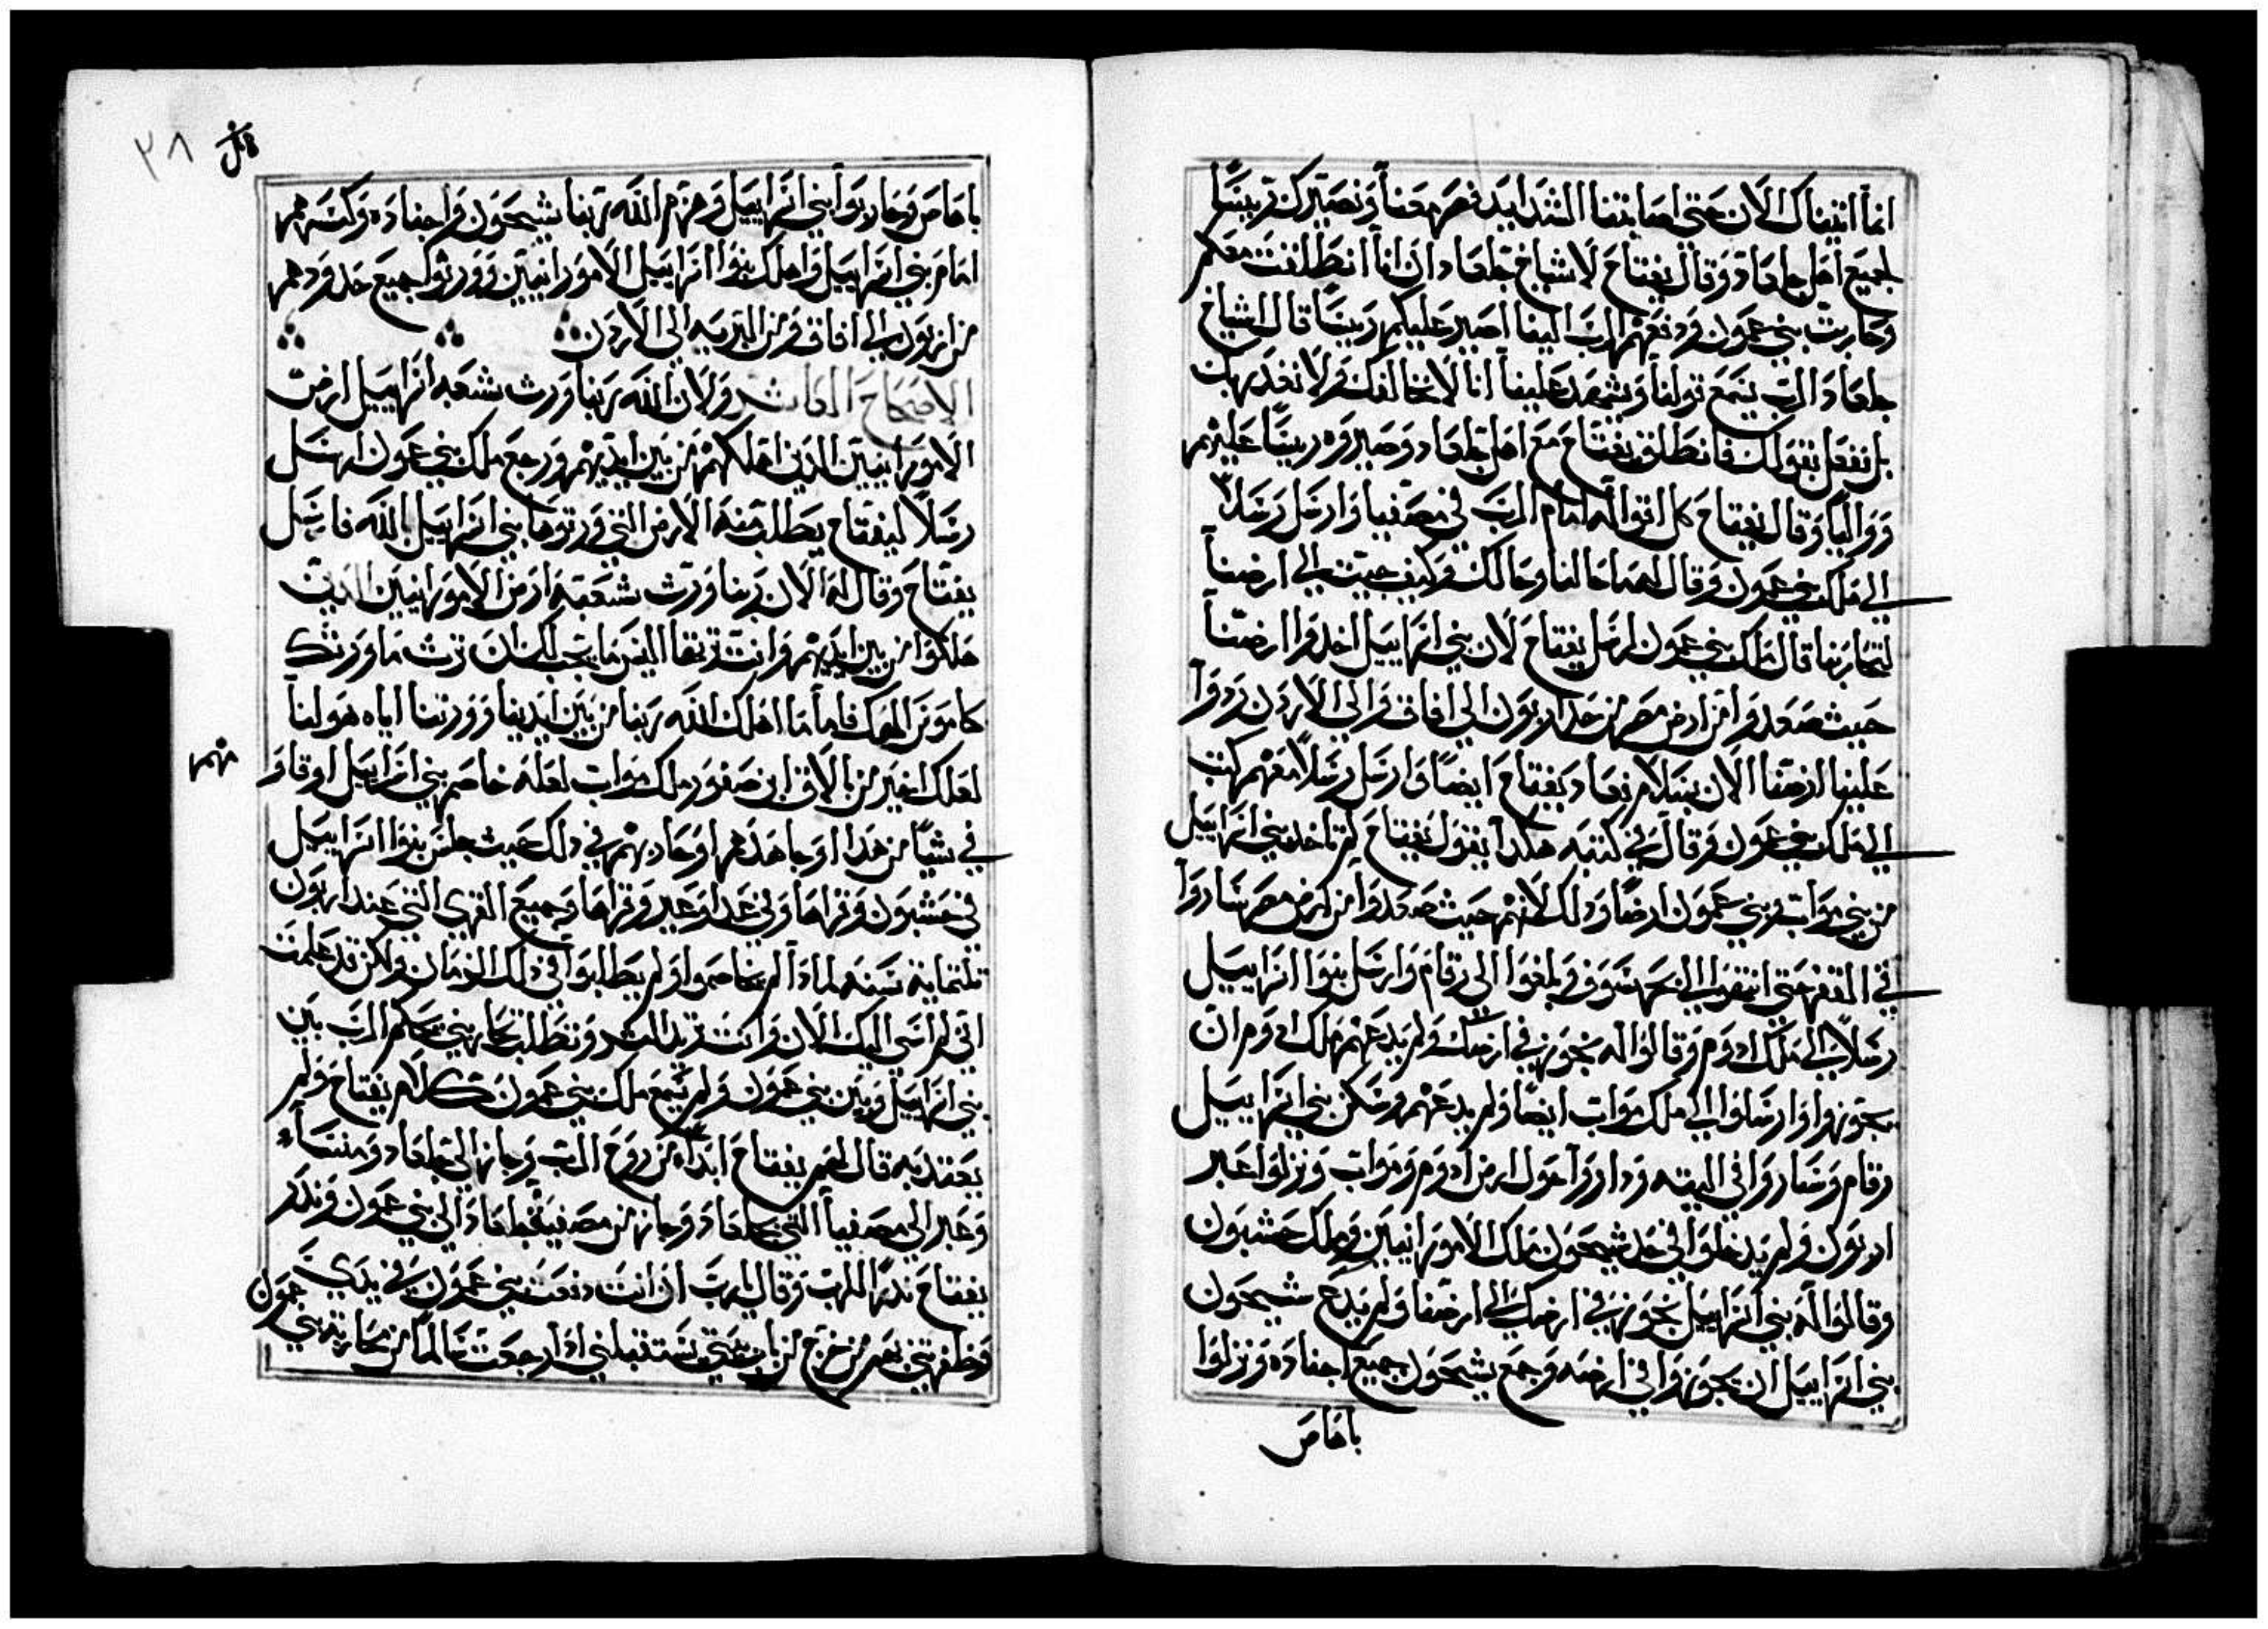 انما اتيناك الان حتى اصابتنا الشدايد فصر معنا ونصيرك رييسا
لجميع اهل جلعاد وقال يفتاح لاشياخ جلعاد ان انا انطلقت معكم
وحاربت بني عمون ودفعهم الرب الينا اصير عليكم رييسا قال اشياخ
جلعاد الرب يسمع قولنا ويشهد علينا انا لا نخالفك ولا نغدر بك
بل نفعل بقولك فانطلق يفتاح مع اهل جلعاد وصيروه رييسا عليهم
وواليا وقال يفتاح كل اقواله امام الرب في مصفيا وارسل رسلا
الى ملك بني عمون وقال لهم ما حالنا وحالك وكيف جيت الى ارضنا
لتحاربنا قال ملك بني عمون لرسل يفتاح لان بني اسراييل اخدوا ارضنا
حيث صعدوا من ارض مصر من حد ارنون الى افاق والى الاردن ردوا
علينا ارضنا الان بسلام فعاد يفتاح ايضا وارسل رسلا معهم كتب
الى ملك بني عمون وقال في كتبه هكدا يقول يفتاح لم تاخد بني اسراييل
من بني مواب وبني عمون ارضا ودلك لانهم حيث صعدوا من ارض مصر ساروا
في القفر حتى انتهوا الى بحر سوف وبلغوا الى رقام وارسل بنوا اسراييل
رسلا الى ملك ادوم وقالوا له نجوز في ارضك ولم يدعهم ملك ادوم ان
يجوزوا وارسلوا الى ملك مواب ايضا ولم يدعهم وسكن بني اسراييل
رقام وساروا في التيه وداروا حول ارض ادوم ومواب ونزلوا عبر
ارنون ولم يدخلوا في حد شيحون ملك الامورانيين وملك حشبون
وقالوا له بني اسراييل نجوز في ارضك الى ارضنا ولم يدع شيحون
بني اسراييل ان يجوزوا في ارضه وجمع شيحون جميع اجناده ونزلوا
باهاص
٣٨
باهاص وحاربوا بني اسراييل وهزم الله ربنا شيحون واجناده وكسرهم
امام بني اسراييل واهلك بنوا اسراييل الامورانيين وورثوا جميع حدودهم
من ارنون الى افاق ومن البريه الى الاردن
الاصحاح العاشر ولان الله ربنا ورث شعبه اسراييل ارض
الامورانيين الدين اهلكهم من بين ايديهم ورجع ملك بني عمون ارسل
رسلا ليفتاح يطلب منه الارض التي ورتوها بني اسراييل بالله فارسل
يفتاح وقال له الان ربنا ورث شعبه ارض الامورانيين الدين
هلكوا من بين ايديهم وانت تريد اليس ما يجب لك ان ترث ما ورثك
كاموش الهك فاما ما اهلك الله ربنا من بين ايدينا وورثنا اياه هو لنا
لعلك اخير من بالاق ابن صفور ملك مواب لعله خاصم بني اسراييل او قاو
مهم
في شيا من هدا او جاهدهم او حاربهم في دلك حيث جلس بنوا اسراييل
في حشبون وقراها وفي عداوعير وقراها وجميع القرى التي عند ارنون
تلتماية سنه لمادا لم يخاصموا ولم يطالبوا في دلك الزمان ولكن قد علمت
اني لم اسي اليك الان وانت تريد الشر وتطلب تحاربني يحكم الرب بين
بني اسراييل وبين بني عمون ولم يسمع ملك بني عمون كلام يفتاح ولم
يعتد به قال لهم يفتاح ابدا من روح الرب وجاز الى جلعاد ومنسا
وعبر الى مصفيا التي جلعاد وجاز من مصفية جلعاد الى بني عمون وندر
يفتاح ندرا للرب وقال يارب ان انت دفعت بني عمون في يدي
وظفرتني بهم من خرج من باب بيتي يستقبلني ادا رجعت سالما من محاربة بني عمون